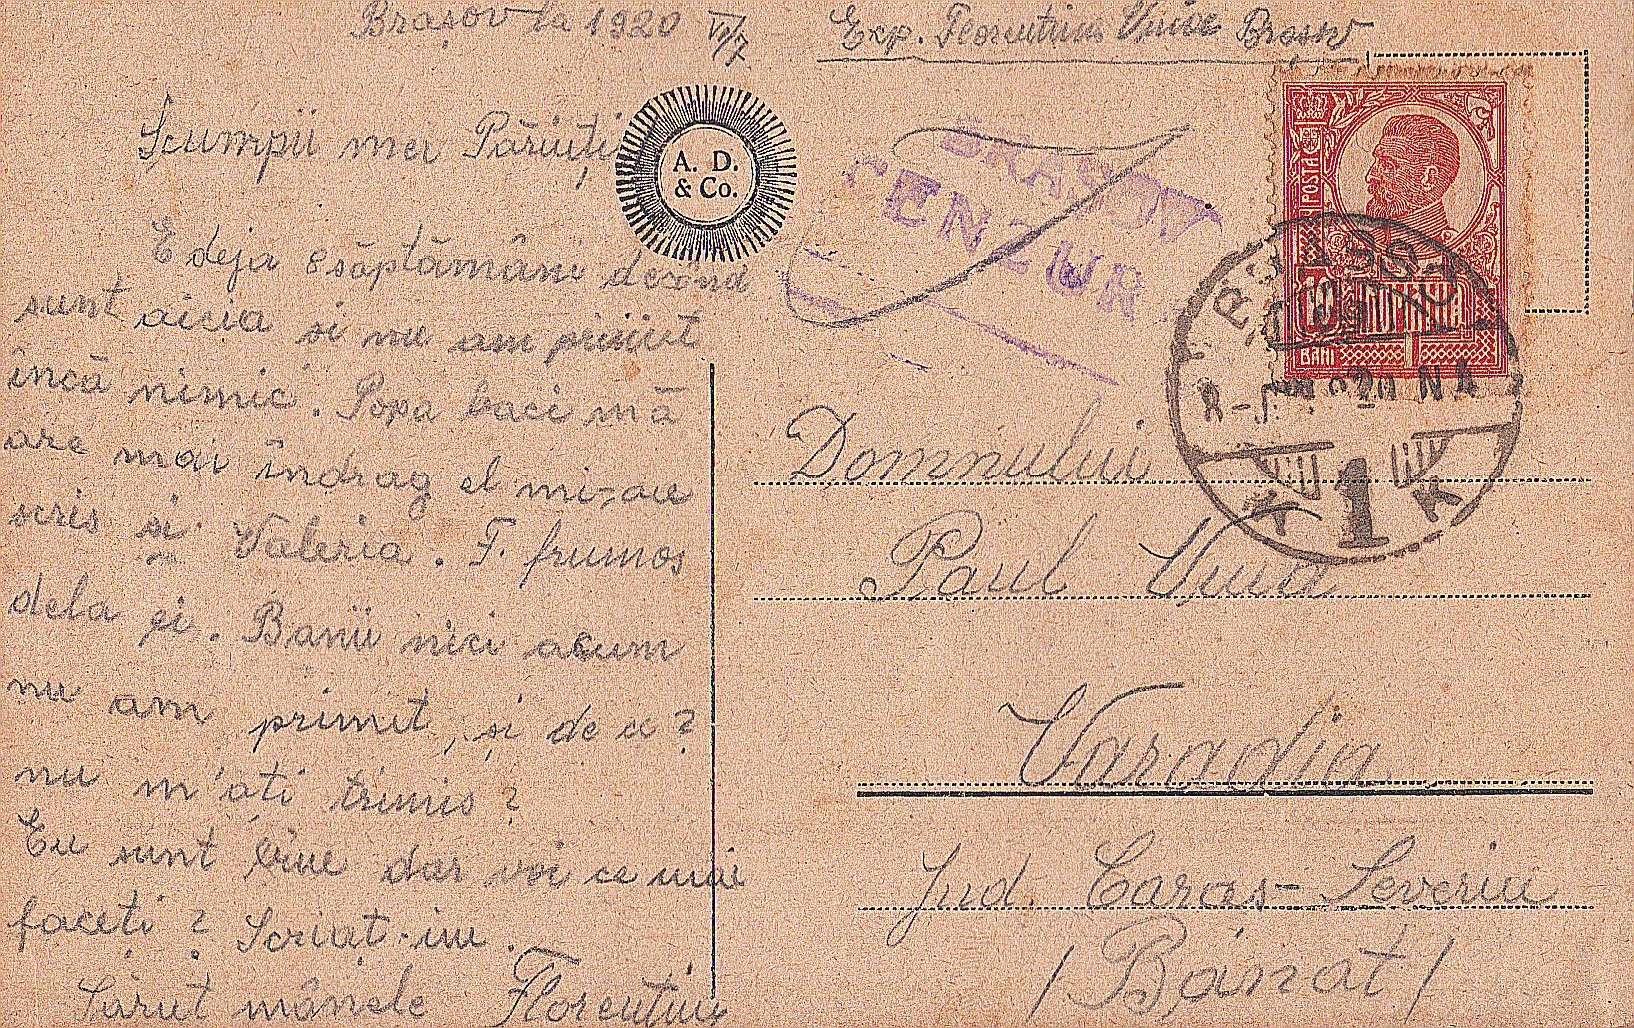 Brașov la 1920 VI/7 – Exp. Florentius Vuia Brașov
Scumpii mei Părinți
A. D.
& Co.
E deja o săptămână decând
sunt aicia și nu am primit
încă nimic. Popa baci mă
are mai îndrag el mi-ace
scris și Valeria. F. frumos
dela ei. Banii nici acum
nu am primit, și de ce?
nu m'ați trimis?
Eu sunt bine dar voi ce mai
faceți? Scriați-mi.
Sărut mânele Florentius
BRAȘOV
CENZUR
POSTA
BANI
8-
920 N 4
1
Domnului
Paul Vuia
Varadia
Jud. Caraș-Severin
/Banat/